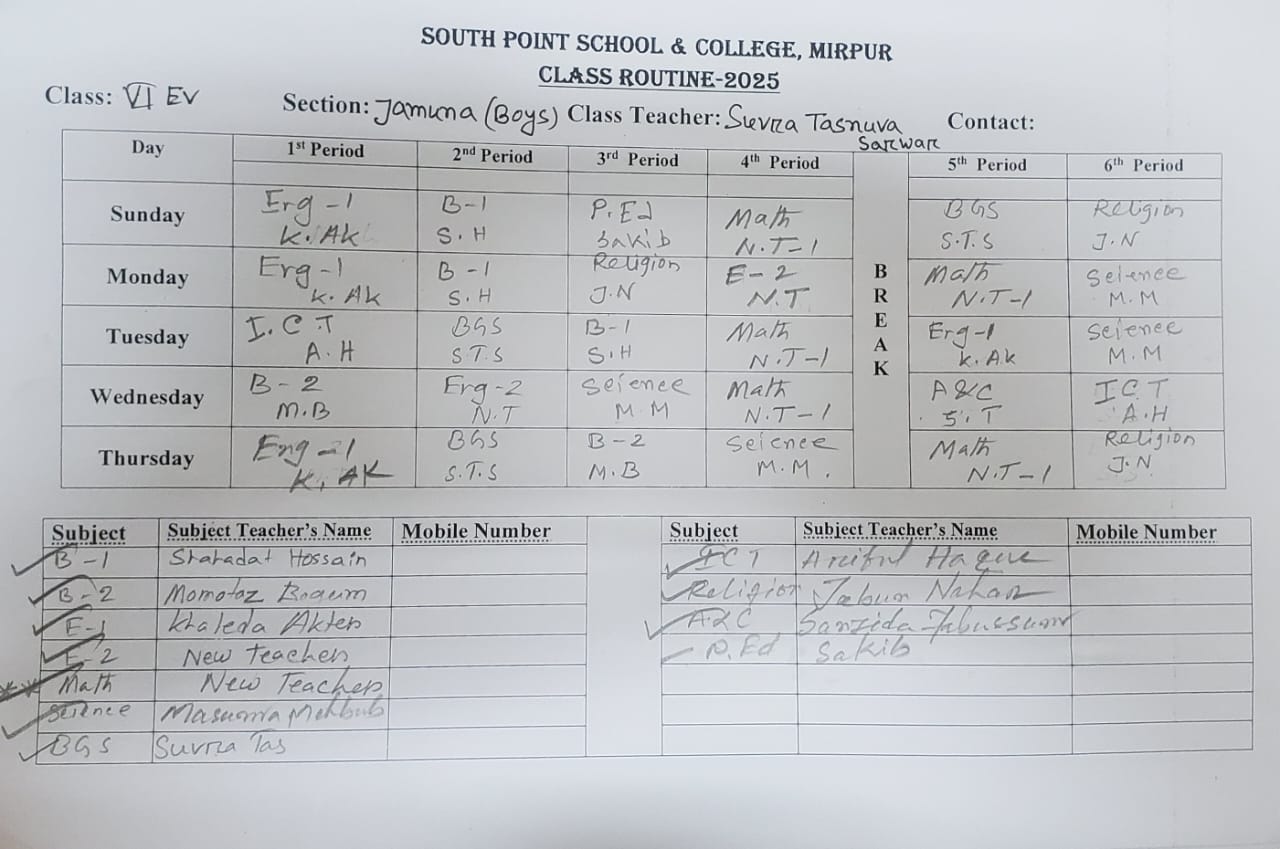 SOUTH POINT SCHOOL & COLLEGE, MIRPUR
CLASS ROUTINE-2025
Class: VI EV Section: Jamuna (Boys) Class Teacher: Suvra Tasnuva Sarwar Contact:
Day 1st Period 2nd Period 3rd Period 4th Period BREAK 5th Period 6th Period
Sunday Erg-1 B-1 P.Ed Math BGS Religion
K. Ak S.H Sakib N.T-1 S.T.S J.N
Monday Erg-1 B-1 Religion E-2 Math Seience
K. Ak S.H J.N N.T N.T-1 M.M
Tuesday I.C.T BGS B-1 Math Erg-1 Seience
A.H S.T.S S.H N.T-1 K.Ak M.M
Wednesday B-2 Erg-2 Seience Math A&C ICT
M.B N.T M.M N.T-1 S.T A.H
Thursday Eng-1 BGS B-2 Seience Math Religion
K. AK S.T.S M.B M.M. N.T-1 J.N
Subject Subject Teacher's Name Mobile Number Subject Subject Teacher's Name Mobile Number
B-1 Shahadat Hossain ICT Ariful Haque
B-2 Momotaz Begum Religion Jebun Nahar
E-1 Khaleda Akter A&C Sanzida Tabussum
E-2 New Teacher P.Ed Sakib
Math New Teacher
Science Masuma Mehbub
BGS Suvra Tas